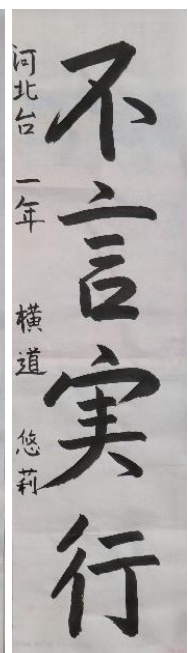 不言実行
河北台 一年 横道 悠莉